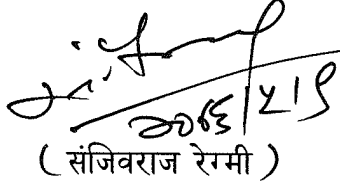 २०७६/५/९
( संजिवराज रेग्मी )